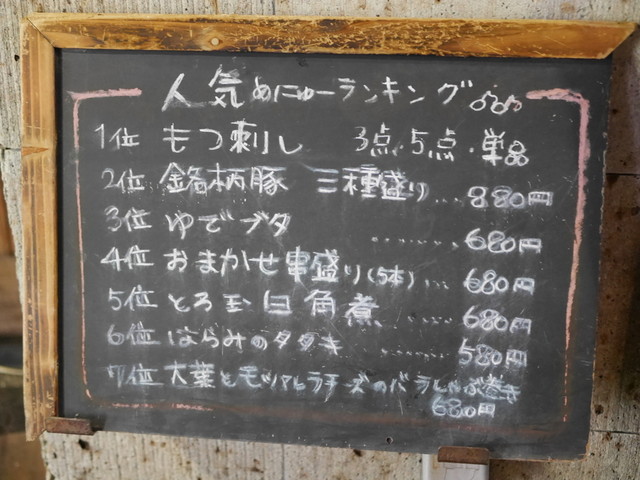 人気めにゅーランキング♪♪
1位 もつ刺し 3点・5点・単品
2位 銘柄豚 三種盛り…880円
3位 ゆでブタ ………680円
4位 おまかせ串盛り(5本)…680円
5位 とろ玉 角煮 ……680円
6位 はらみのタタキ ……580円
7位 大葉とモッツァレラチーズのバラしゃぶ巻き
680円